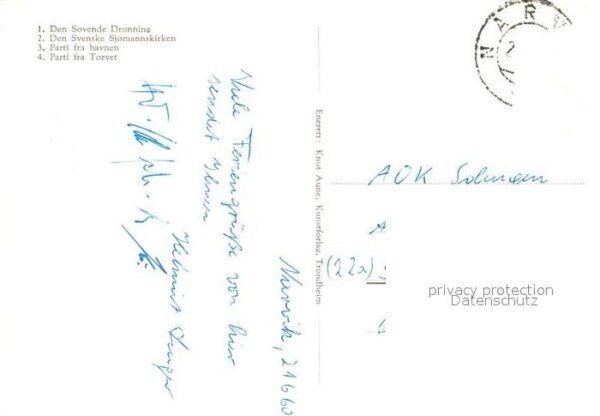 1. Den Sovende Dronning
2. Den Svenske Sjømannskirken
3. Parti fra havnen
4. Parti fra Torvet
NARV
2
Narvik, 21660
Viele Feriengrüße von hier
sendet Ihnen
Helmut
Enerett: Knut Aune, Kunstforlag, Trondheim
AOK Solingen
(22a)
privacy protection
Datenschutz